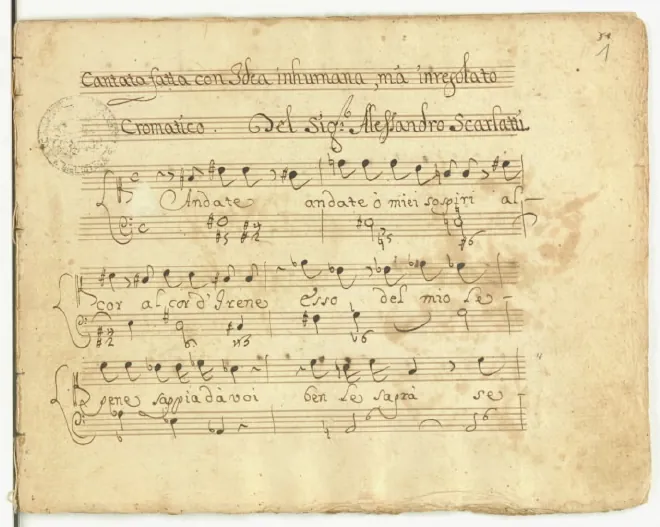 Cantata fatta con Idea inhumana, mà in regolato
Cromatico. Del Sig.r Alessandro Scarlatti
Andate andate ò miei sospiri al
cor al cor d'Irene e sso del mio le
pene sappia dà voi ben se saprà se
1